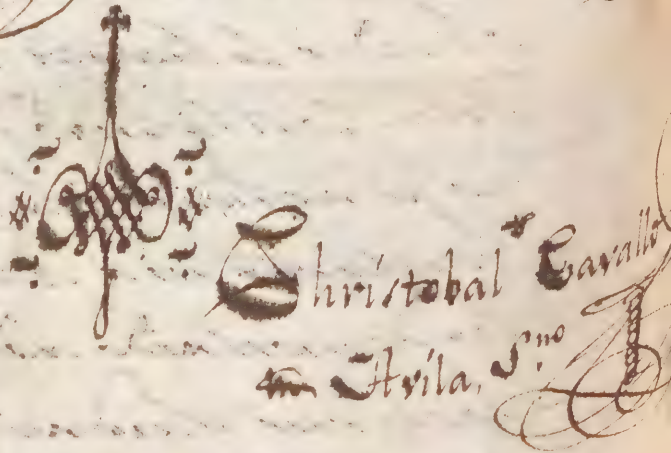 Christobal Cavallo
de Avila, Sno